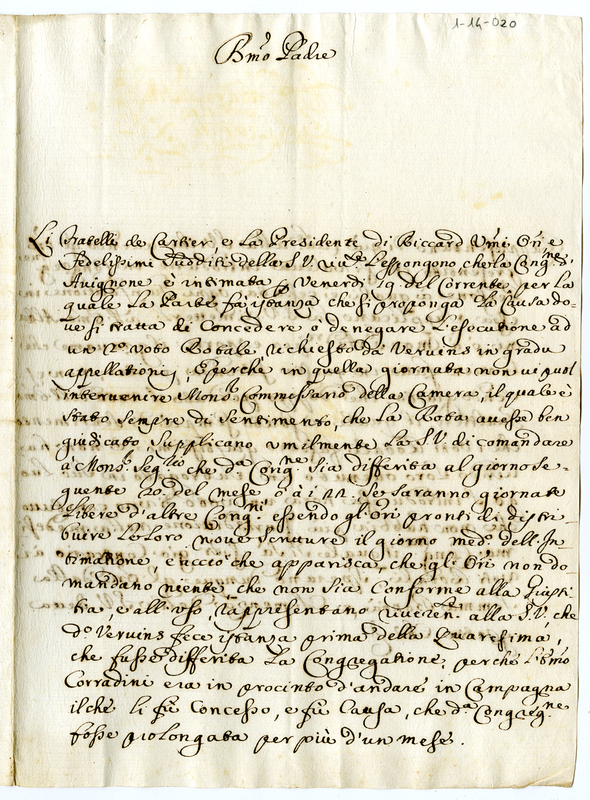 1-14-020
Bmo Padre
Li fratelli de Cartier, e La Presidente di Biccard Vmi Ori, e
fedelissimi sudditi della S.V. L'espongono che la Congne
Auignone è intimata p Venerdi 19 del Corrente, per la
quale La Parte fà istanza che si proponga La Causa do-
ue si tratta di Concedere ò denegare L'esecutione ad
un voto Rotale richiesto dà Veruins in gradu
appellationis, E perche in quella giornata non ui puol
interuenire Monsr Commissario della Camera, il quale è
stato sempre di sentimento, che La Rota auesse ben
giudicato supplicano umilmente La S.V. di comandare
à Monsr Segrio che da Congne sia differita al giorno se-
guente 20. del mese, ò à i se saranno giornate
Libere d'altre Congni essendo gl'Ori pronti di distri-
buire Le Loro noue scritture il giorno medo dell'In-
timatione, e acciò che apparisca, che gl'Ori non do-
mandano niente che non sia Conforme alla Giusti-
tia, e all'uso, rappresentano alla S.V., che
do Veruins fece istanza prima della Quaresima,
che fusse differita La Congregatione, perche L'Emo
Corradini era in procinto d'andare in Campagna
ilche li fù Concesso, e fù Causa, che da Congregne
fosse prolongata per più d'un mese.